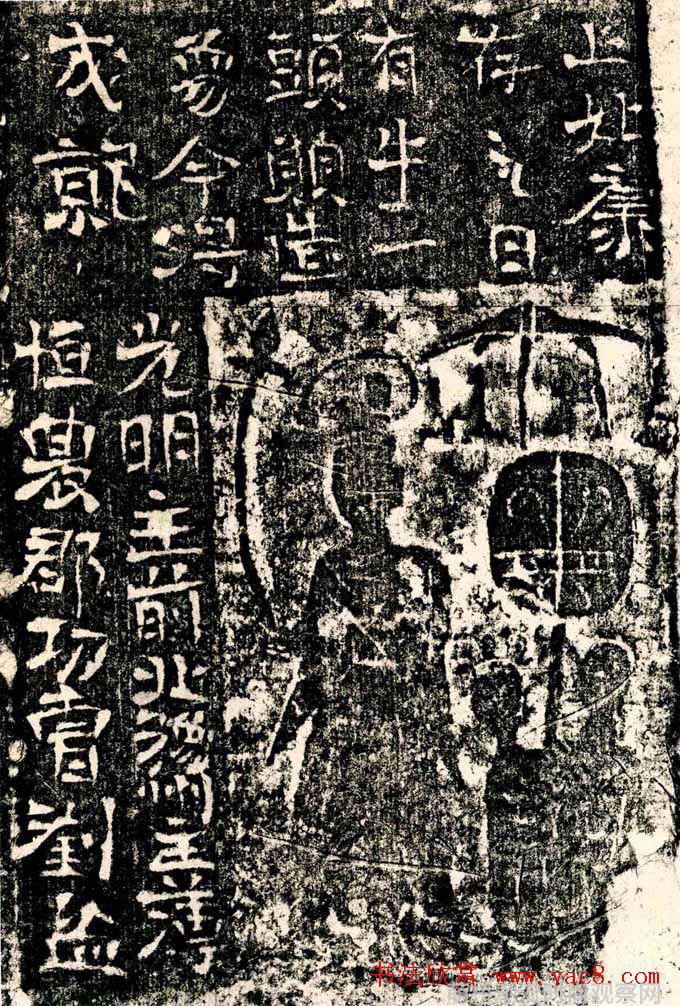 上
存之日
有牛一
頭願造
象今得
成就
光明主前北豫州主簿
恒農郡功曹劉孟
书法欣赏 www.yac8.com